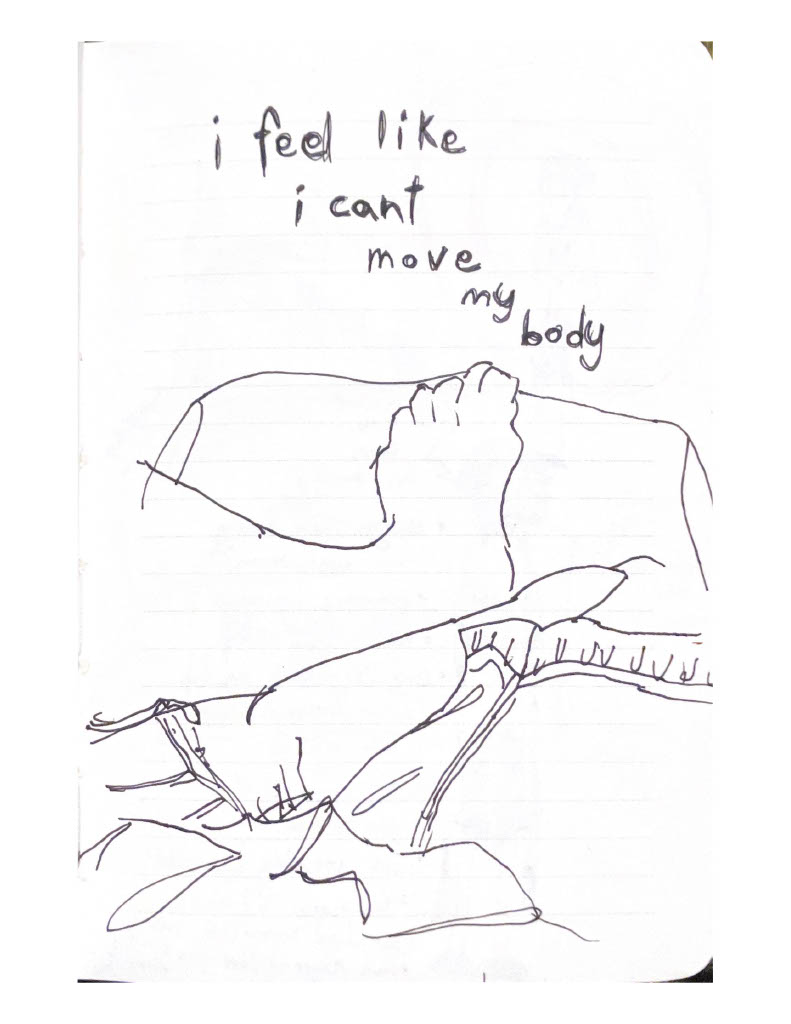 i feel like
i cant
move
my
body